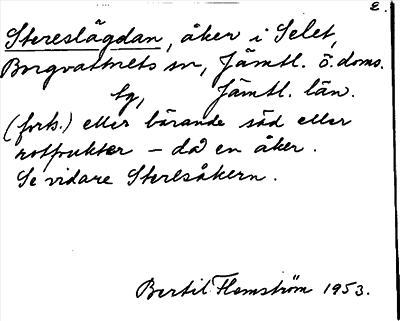 2.
Stereslägdan, åker i Selet,
Borgvattnets sn, Jämtl. ö. doms.
sg, Jämtl. län.
(forts.) eller bärande säd eller
rotfrukter – då en åker.
Se vidare Steresåkern.
Bertil Flemström 1953.